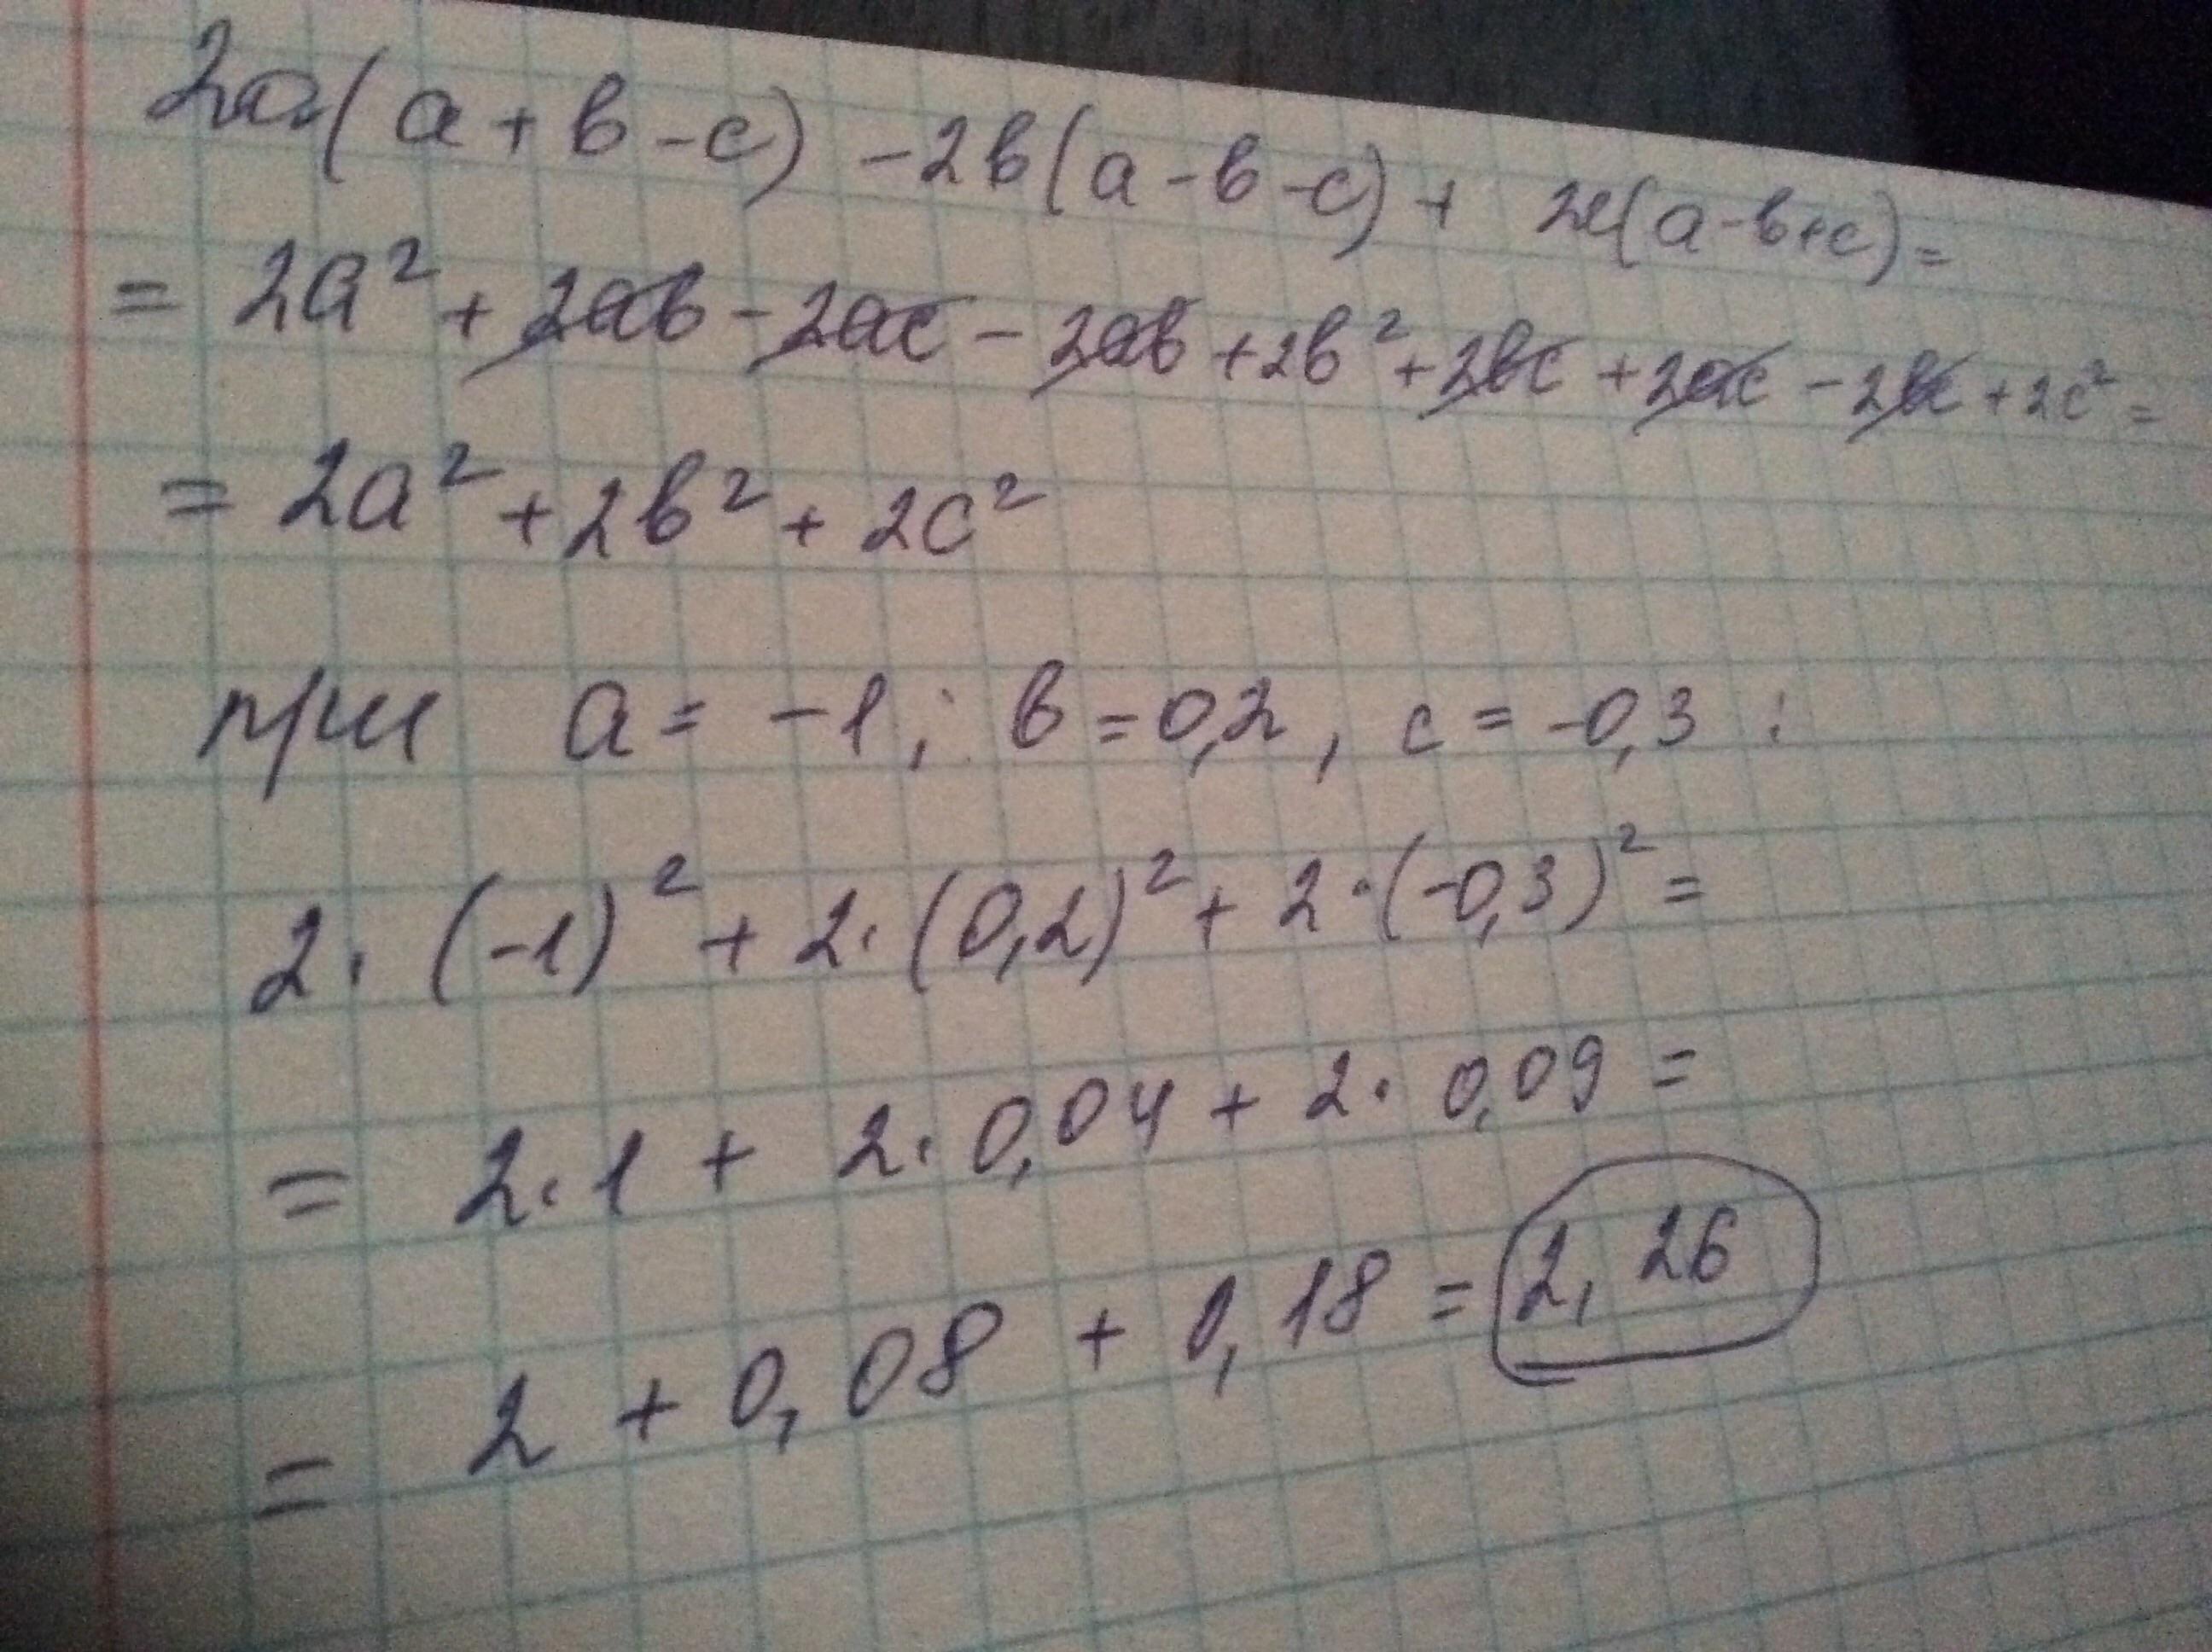 2a(a+b-c) -2b(a-b-c)+ 2c(a-b+c)=
= 2a² + 2ab - 2ac - 2ab + 2b² + 2bc + 2ac - 2bc + 2c² =
= 2a² + 2b² + 2c²
при a = -1; b = 0,2, c = -0,3 :
2·(-1)² + 2·(0,2)² + 2·(-0,3)² =
= 2·1 + 2·0,04 + 2·0,09 =
= 2 + 0,08 + 0,18 = 2,26